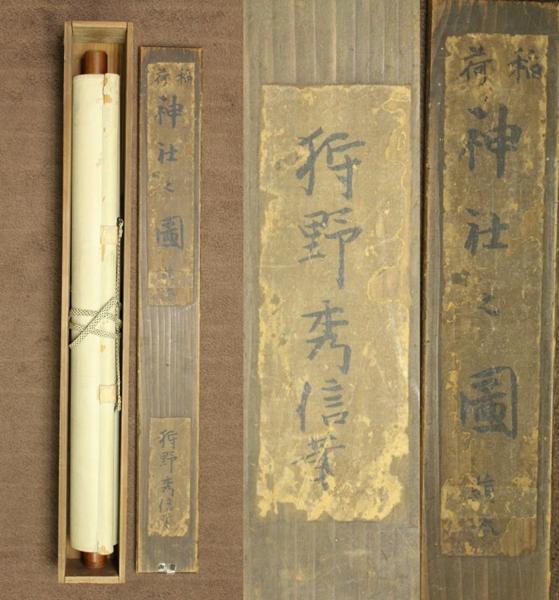 稲荷
神社之圖
狩野秀信筆
狩野秀信筆
稲荷
神社之圖